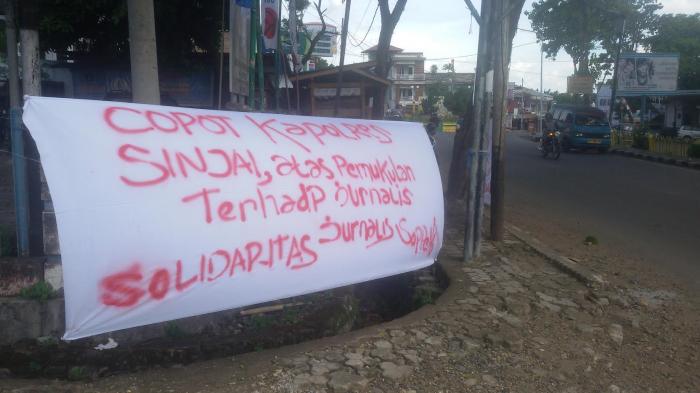 COPOT KAPOLRES
SINJAI, atas Pemukulan
Terhadp Jurnalis
SOLIDARITAS Jurnalis